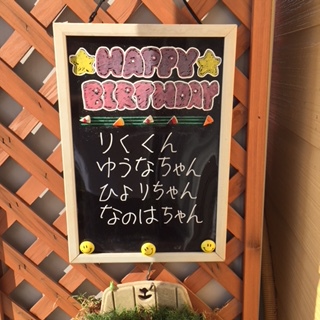 HAPPY
BIRTHDAY
りくくん
ゆうなちゃん
ひよりちゃん
なのはちゃん